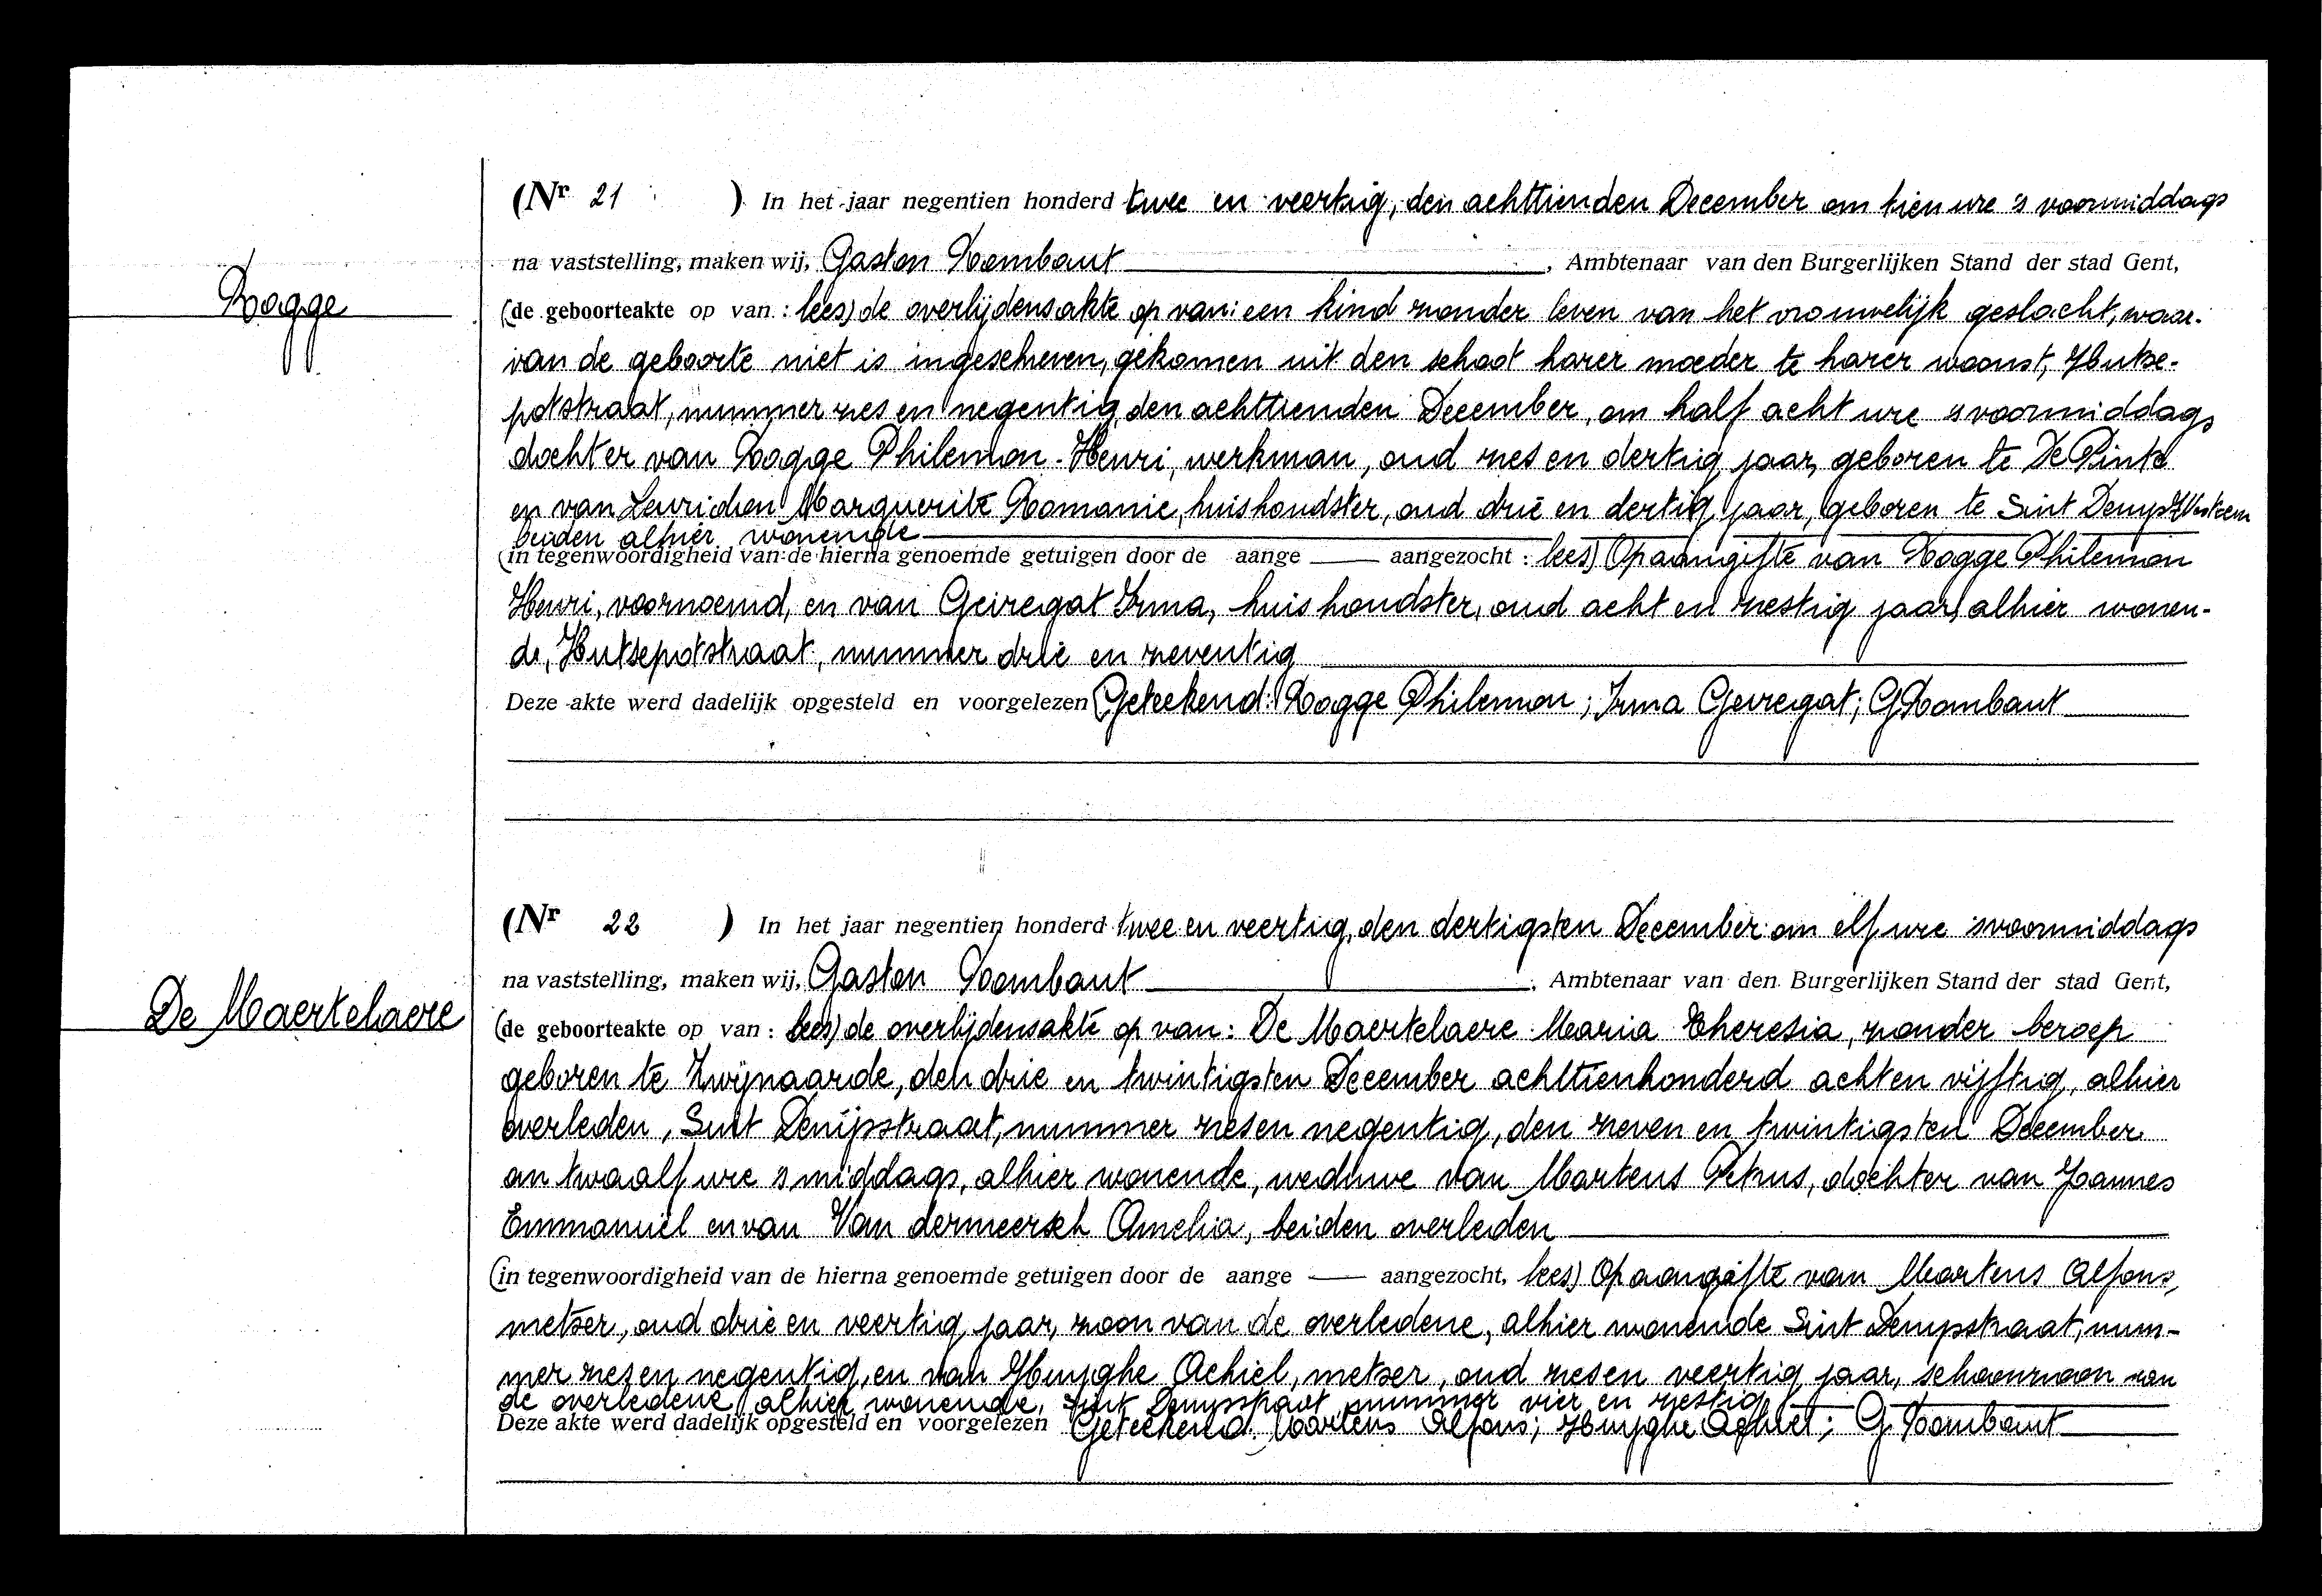 (Nr 21 ) In het jaar negentien honderd twee en veertig, den achttienden December om tien ure 's voormiddags
na vaststelling, maken wij, Gaston Rombaut, Ambtenaar van den Burgerlijken Stand der stad Gent,
Rogge
(de geboorteakte op van : lees) de overlijdensakte op van: een kind zonder leven van het vrouwelijk geslacht, waar-
van de geboorte niet is ingeschreven, gekomen uit den schoot harer moeder te harer woonst, Hutse-
potstraat, nummer zes en negentig, den achttienden December, om half acht ure 's voormiddags
dochter van Rogge Philemon-Henri, werkman, oud zes en dertig jaar, geboren te De Pinte
en van Marguerite Romanie, huishoudster, oud drie en dertig jaar, geboren te Sint Denijs Westrem
beiden alhier wonende
(in tegenwoordigheid van de hierna genoemde getuigen door de aange — aangezocht : lees) Op aangifte van Rogge Philemon
Henri, voornoemd, en van Geiregat Irma, huishoudster, oud acht en zestig jaar, alhier wonen-
de, Hutsepotstraat, nummer drie en zeventig
Deze akte werd dadelijk opgesteld en voorgelezen Geteekend: Rogge Philemon; Irma Geiregat; G Rombaut
(Nr 22 ) In het jaar negentien honderd twee en veertig, den dertigsten December om elf ure 's voormiddags
na vaststelling, maken wij, Gaston Rombaut, Ambtenaar van den Burgerlijken Stand der stad Gent,
De Maertelaere
(de geboorteakte op van : lees) de overlijdensakte op van: De Maertelaere Maria Theresia, zonder beroep
geboren te Zwijnaarde, den drie en twintigsten December achttienhonderd acht en vijftig, alhier
overleden, Sint Denijsstraat, nummer zes en negentig, den zeven en twintigsten December
om twaalf ure 's middags, alhier wonende, weduwe van Martens Petrus, dochter van Joannes
Emmanuël en van Van dermeersch Amelia, beiden overleden
(in tegenwoordigheid van de hierna genoemde getuigen door de aange — aangezocht, lees) Op aangifte van Martens Alfons,
metser, oud drie en veertig jaar, zoon van de overledene, alhier wonende Sint Denijsstraat, num-
mer zes en negentig, en van Huyghe Achiel, metser, oud zes en veertig jaar, schoonzoon van
de overledene, alhier wonende, Sint Denijsstraat, nummer vier en zestig
Deze akte werd dadelijk opgesteld en voorgelezen Geteekend: Martens Alfons; Huyghe Achiel; G Rombaut